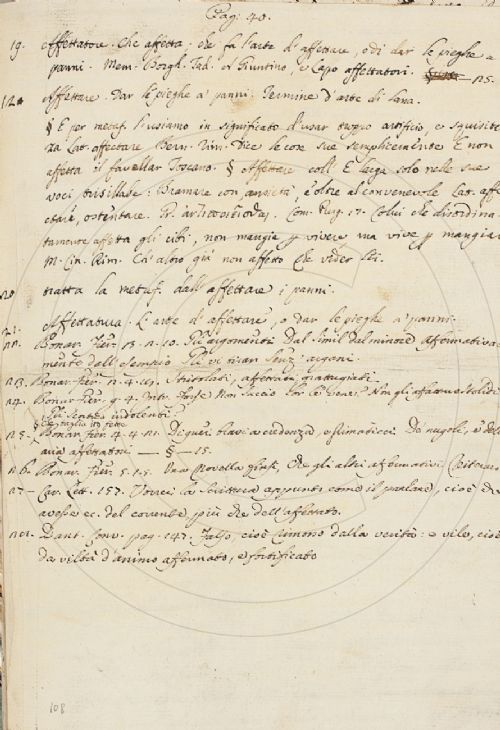 Pag. 40.
19. Affettatore. Che affetta; che fa l'arte d'affettare, o di dar le pieghe a
panni. Mem. Borgh. Tad. el Giuntino, e Lapo affettatori. n5.
Affettare. Dar le pieghe a' panni. Termine d'arte di Lana.
§ E per metaf. l'usiamo in significato d'usar troppo artifizio, e squisitez
za Lat. affectare Bern. Rim. Dice le cose sue semplicemente E non
affetta il favellar Toscano. § Affettare coll' E larga solo nelle sue
voci trisillabe: Bramare con ansietà, e oltre al convenevole Lat. affe
ctare, ostentare. Gr. Com. Purg. Colui che disordina
tamente affetta gli cibi, non mangia p vivere ma vive p mangiar
M. Cin. Rim. Ch' altro già non affetto che veder lei.
20 tratta la metaf. dall' affettare i panni.
21. Affettatura. L'arte d'affettare, o dar le pieghe a' panni.
Bonar. Fier. 3. Più argomenti Dal simil dal minore affermativa
mente dell' esempio
n3. Bonar. Fier. Stritolati, affettati, grattugiati.
n4. Bonar. Fier. g. 4. Intr. Forse Non succio Non gli affanno stolidi
Più sentito indolenti?
n5. Bonar. Fier. 4. 4. Di quei bravi a credenza, e stimaticci De' nugoli, e dell'
aria affettatori — § — 15.
n6. Bonar. Fier. 5. Una Novella Che gli altri affermativi
n7 — Car. Lett. 157. Vorrei la scrittura appunto come il parlare, cioè che
avesse ec. del corrente più che dell' affettato.
Dant. Conv. pag. 147. Falso, cioè rimosso dalla verità: e vile, cioè
da viltà d'animo affermato, e fortificato
108